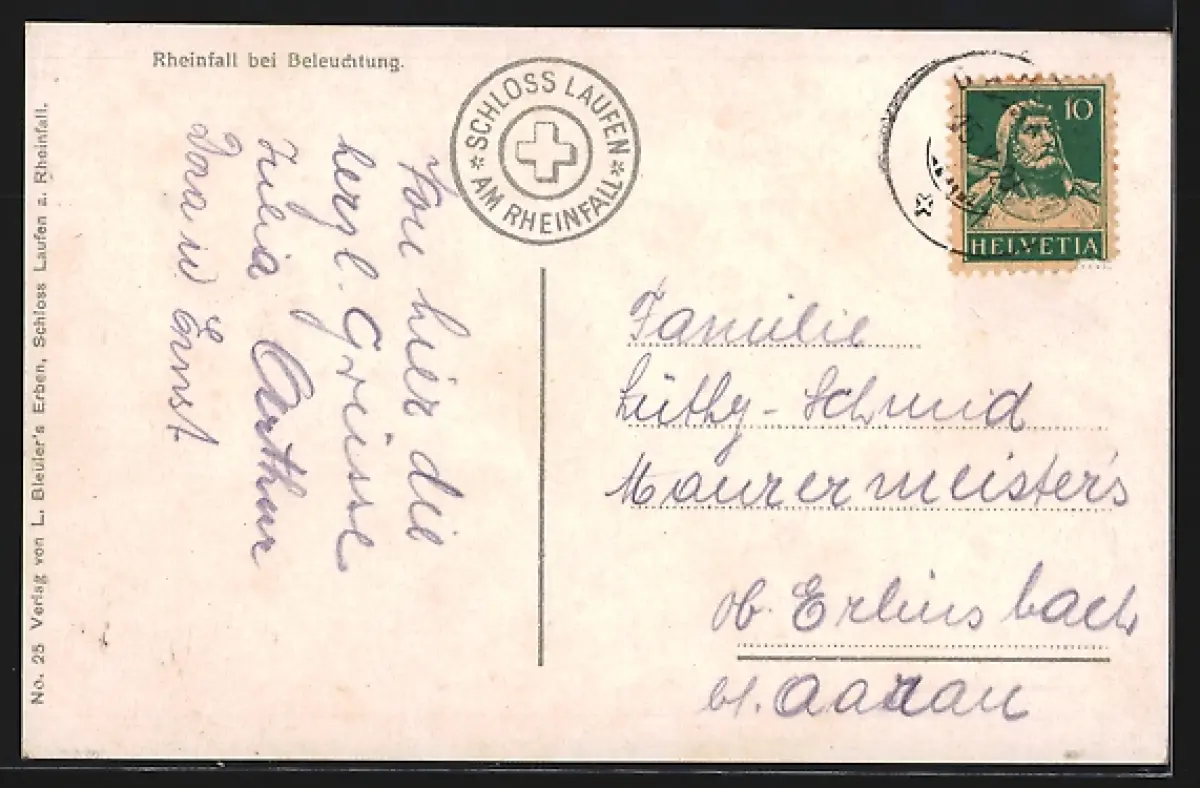 Rheinfall bei Beleuchtung.
No. 25 Verlag von L. Bleuler's Erben, Schloss Laufen a. Rheinfall.
* SCHLOSS LAUFEN *
AM RHEINFALL
10
HELVETIA
Von hier die
herzl. Grüsse
Julia Arthur
Dora u Ernst
Familie
Lüthy-Schmid
Maurermeister's
ob. Erlinsbach
bt. Aarau